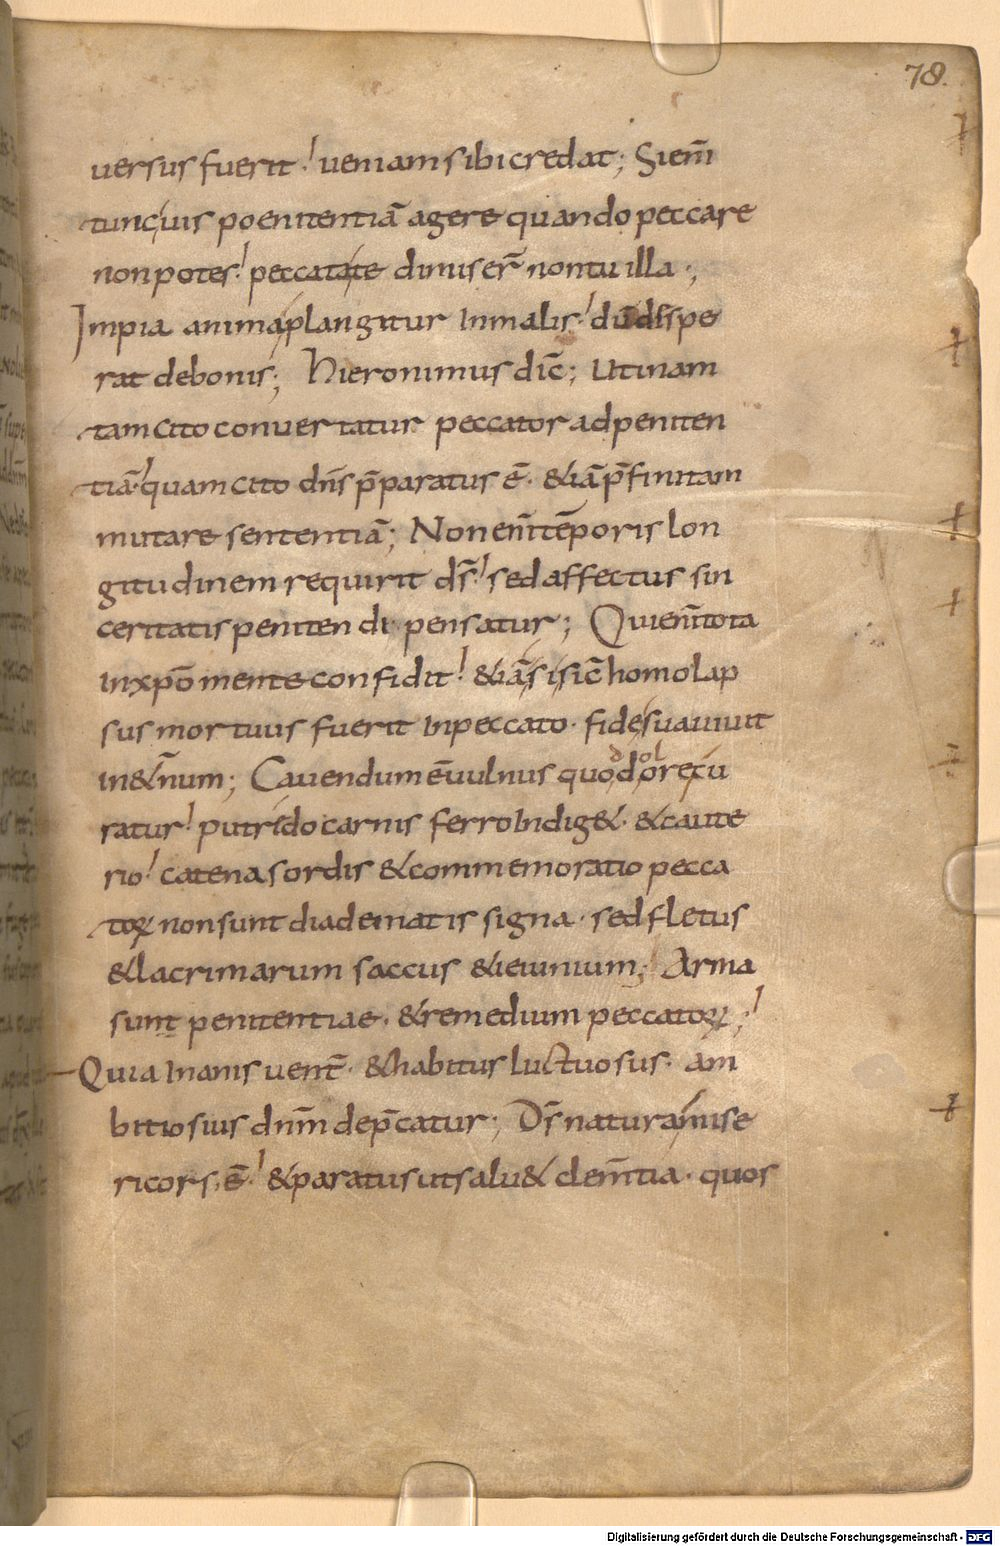 78.
uersus fuerit. ueniam sibi credat; Si eni̅
tunc uis poenitentia̅ agere quando peccare
non potes. peccata te dimiser̅ non tu illa;
Impia anima plangitur in malis. du̅ dispe
rat de bonis; Hieronimus dic̅; Utinam
tam cito conuertatur peccator ad peniten
tia̅. quam cito dn̅s p̅paratus e̅. & ia̅ p̅finitam
mutare sententia̅; Non eni̅ te̅poris lon
gitudinem requirit ds̅. sed affectus sin
ceritatis penitendi pensatur; Qui eni̅ tota
in xp̅o mente confidit. & ia̅ si sic̅ homo lap
sus mortuus fuerit in peccato. fides ua uiuit
in &er̅num; Cauendum e̅ uulnus quod
ratur. putrido carnis ferro indig&. & caute
rio. catena sordis & commemoratio pecca
torꝝ non sunt diadematis signa. sed fletus
& lacrimarum saccus & ieiunium; Arma
sunt penitentiae. & remedium peccatorꝝ;
Quia inanis uent̅. & habitus luctuosus. am
bitiosius dn̅m dep̅catur; Ds̅ natura mise
ricors e̅. & paratus ut salu& clem̅tia. quos
Digitalisierung gefördert durch die Deutsche Forschungsgemeinschaft - DFG